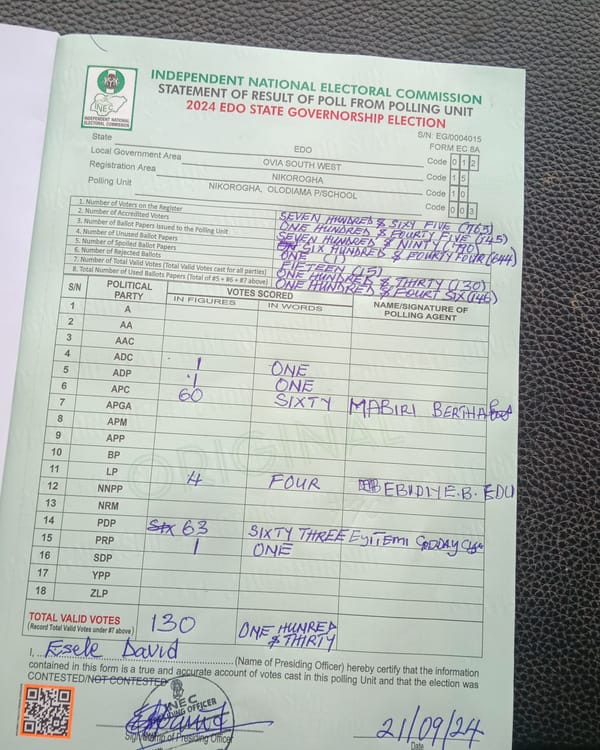 INDEPENDENT NATIONAL ELECTORAL COMMISSION
STATEMENT OF RESULT OF POLL FROM POLLING UNIT
2024 EDO STATE GOVERNORSHIP ELECTION
INEC
INDEPENDENT NATIONAL ELECTORAL COMMISSION
S/N: EG/0004015
FORM EC 8A
State EDO Code 0 1 2
Local Government Area OVIA SOUTH WEST Code 1 5
Registration Area NIKOROGHA Code 1 0
Polling Unit NIKOROGHA, OLODIAMA P/SCHOOL Code 0 0 3
1. Number of Voters on the Register SEVEN HUNDRED & SIXY FIVE (765)
2. Number of Accredited Voters ONE HUNDRED & FOURTY FIVE (145)
3. Number of Ballot Papers Issued to the Polling Unit SEVEN HUNDRED & NINTY (790)
4. Number of Unused Ballot Papers SIX HUNDRED & FOURTY FOUR (644)
5. Number of Spoiled Ballot Papers ONE (1)
6. Number of Rejected Ballots FIFTEEN (15)
7. Number of Total Valid Votes (Total Valid Votes cast for all parties) ONE HUNDRED & THIRTY (130)
8. Total Number of Used Ballots Papers (Total of #5 + #6 + #7 above) ONE HUNDRED & FOURT SIX (146)
S/N POLITICAL PARTY VOTES SCORED NAME/SIGNATURE OF POLLING AGENT
IN FIGURES IN WORDS
1 A
2 AA
3 AAC
4 ADC 1 ONE
5 ADP 1 ONE
6 APC 60 SIXTY MABIRI BERTHA
7 APGA
8 APM
9 APP
10 BP
11 LP 4 FOUR EBIDIYE.B. EDU
12 NNPP
13 NRM
14 PDP SIX 63 SIXTY THREE EYITEMI GODDAY
15 PRP 1 ONE
16 SDP
17 YPP
18 ZLP
ORIGINAL
TOTAL VALID VOTES 130 ONE HUNRED & THIRTY
(Record Total Valid Votes under #7 above)
I, Esele David (Name of Presiding Officer) hereby certify that the information
contained in this form is a true and accurate account of votes cast in this polling Unit and that the election was
CONTESTED/NOT CONTESTED
INEC
PRESIDING OFFICER
21/09/24
Sign/Stamp of Presiding Officer Date